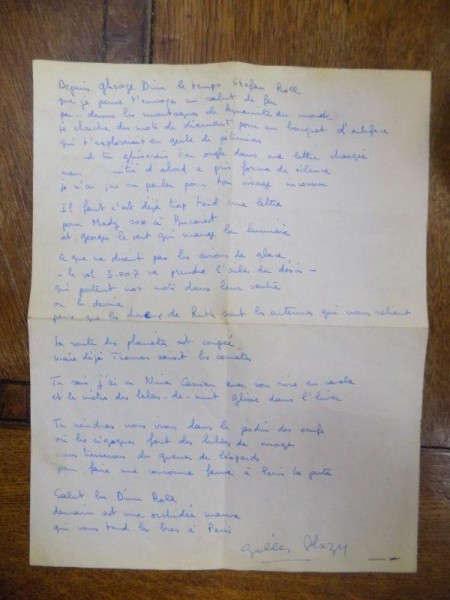 Depuis
le temps Stefan Roll
que je pense t'envoyer un salut de feu
par-dessus les montagnes de dynamite du monde
je cherche des mots de diamant pour un bouquet d'artifice
qui t'exploserait en gerbe de pétunias
dans une lettre chargée
d'abord a pris forme de silence
je n'ai pu en parler pour ton visage inconnu
Il faut c'est déjà trop tard une lettre
pour Mady à Bucarest
et georges le vent qui mange la lumière
ce que ne disent pas les avions de glace
- le vol 3.007 va prendre l'aile du désir -
qui portent nos mots dans leur ventre
on le devine
parce que les de Ruth sont les antennes qui nous relient
La route des planètes est coupée
mais déjà Thomas saisit les comètes
Tu sais j'ai vu Nina Cassian avec son rire en
et le métro des belles-de-nuit glisse dans l'hiver
Tu viendras nous irons dans le jardin des
où les cigognes font des bulles de nuage
nous tresserons des queues de léopards
pour faire une couronne fauve à Paris la pute
Salut les Dinu Roll
demain est une orchidée mauve
qui vous tend les bras à Paris
Gilles Plazy